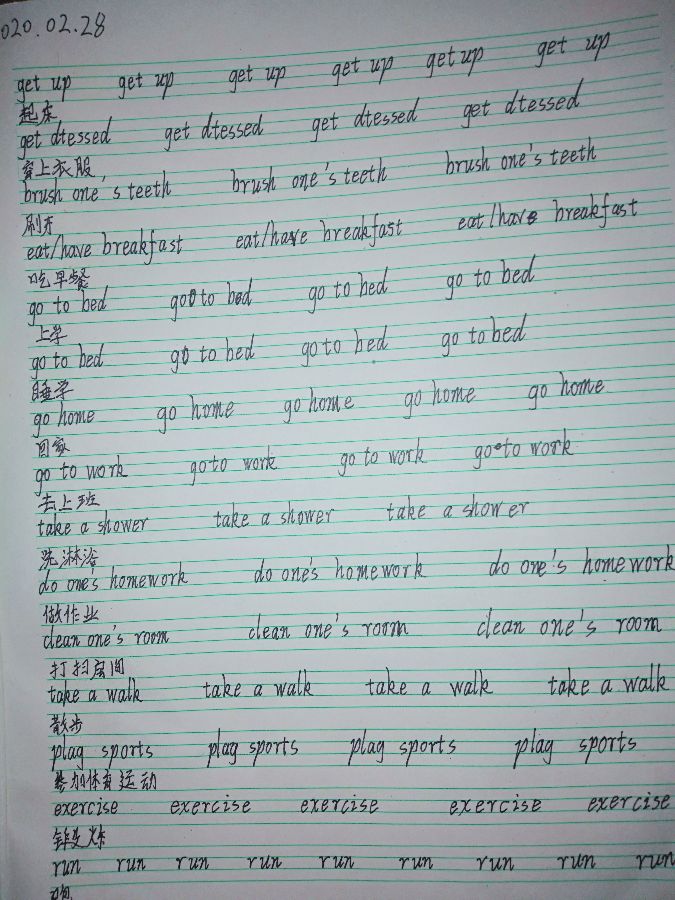 020.02.28
get up get up get up get up get up get up
起床
get dtessed get dtessed get dtessed get dtessed
穿上衣服
brush one's teeth brush one's teeth brush one's teeth
刷牙
eat/have breakfast eat/have breakfast eat/have breakfast
吃早餐
go to bed go to bed go to bed go to bed
上学
go to bed go to bed go to bed go to bed
睡学
go home go home go home go home go home
回家
go to work go to work go to work go to work
去上班
take a shower take a shower take a shower
洗淋浴
do one's homework do one's homework do one's homework
做作业
clean one's room clean one's room clean one's room
打扫房间
take a walk take a walk take a walk take a walk
散步
plag sports plag sports plag sports plag sports
参加体育运动
exercise exercise exercise exercise exercise
锻炼
run run run run run run run run run